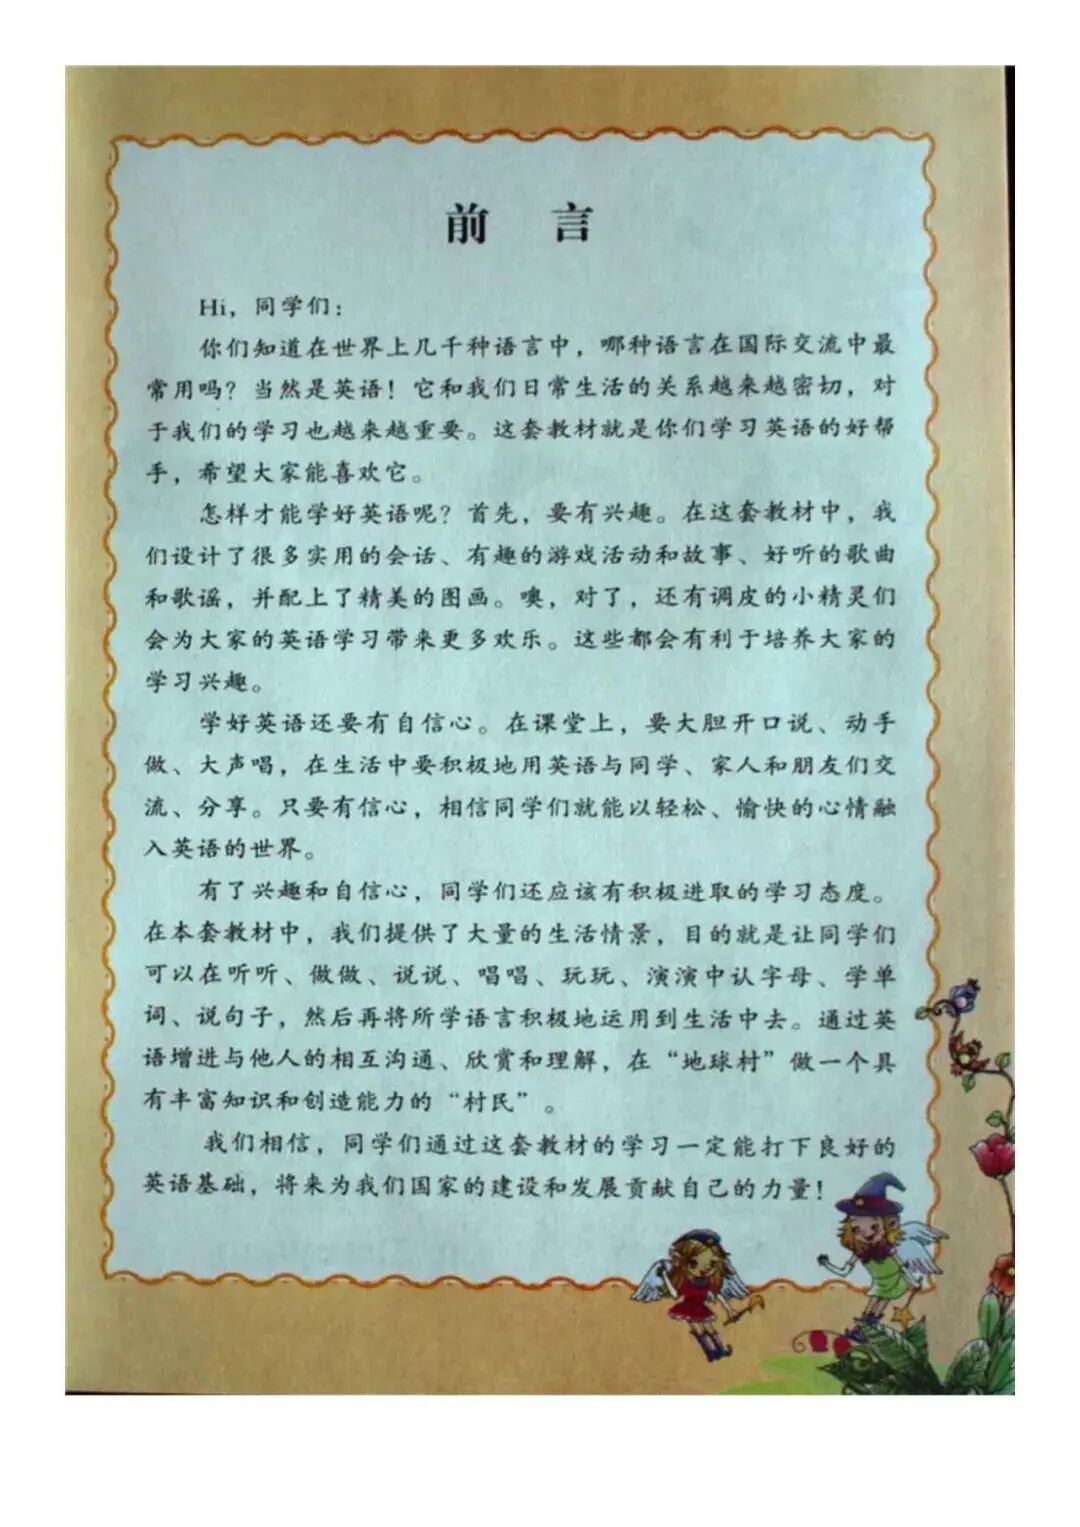 前　言
Hi，同学们：
你们知道在世界上几千种语言中，哪种语言在国际交流中最
常用吗？当然是英语！它和我们日常生活的关系越来越密切，对
于我们的学习也越来越重要。这套教材就是你们学习英语的好帮
手，希望大家能喜欢它。
怎样才能学好英语呢？首先，要有兴趣。在这套教材中，我
们设计了很多实用的会话、有趣的游戏活动和故事、好听的歌曲
和歌谣，并配上了精美的图画。噢，对了，还有调皮的小精灵们
会为大家的英语学习带来更多欢乐。这些都会有利于培养大家的
学习兴趣。
学好英语还要有自信心。在课堂上，要大胆开口说、动手
做、大声唱，在生活中要积极地用英语与同学、家人和朋友们交
流、分享。只要有信心，相信同学们就能以轻松、愉快的心情融
入英语的世界。
有了兴趣和自信心，同学们还应该有积极进取的学习态度。
在本套教材中，我们提供了大量的生活情景，目的就是让同学们
可以在听听、做做、说说、唱唱、玩玩、演演中认字母、学单
词、说句子，然后再将所学语言积极地运用到生活中去。通过英
语增进与他人的相互沟通、欣赏和理解，在“地球村”做一个具
有丰富知识和创造能力的“村民”。
我们相信，同学们通过这套教材的学习一定能打下良好的
英语基础，将来为我们国家的建设和发展贡献自己的力量！